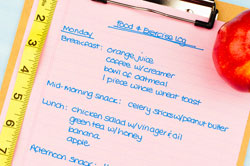 Food & Exercise Log
Monday
Breakfast: orange juice
coffee w/creamer
bowl of oatmeal
1 piece whole wheat toast
Mid-Morning snack: celery sticks w/peanut butter
Lunch: chicken salad w/vinegar & oil
green tea w/honey
banana
apple
Afternoon Snack: